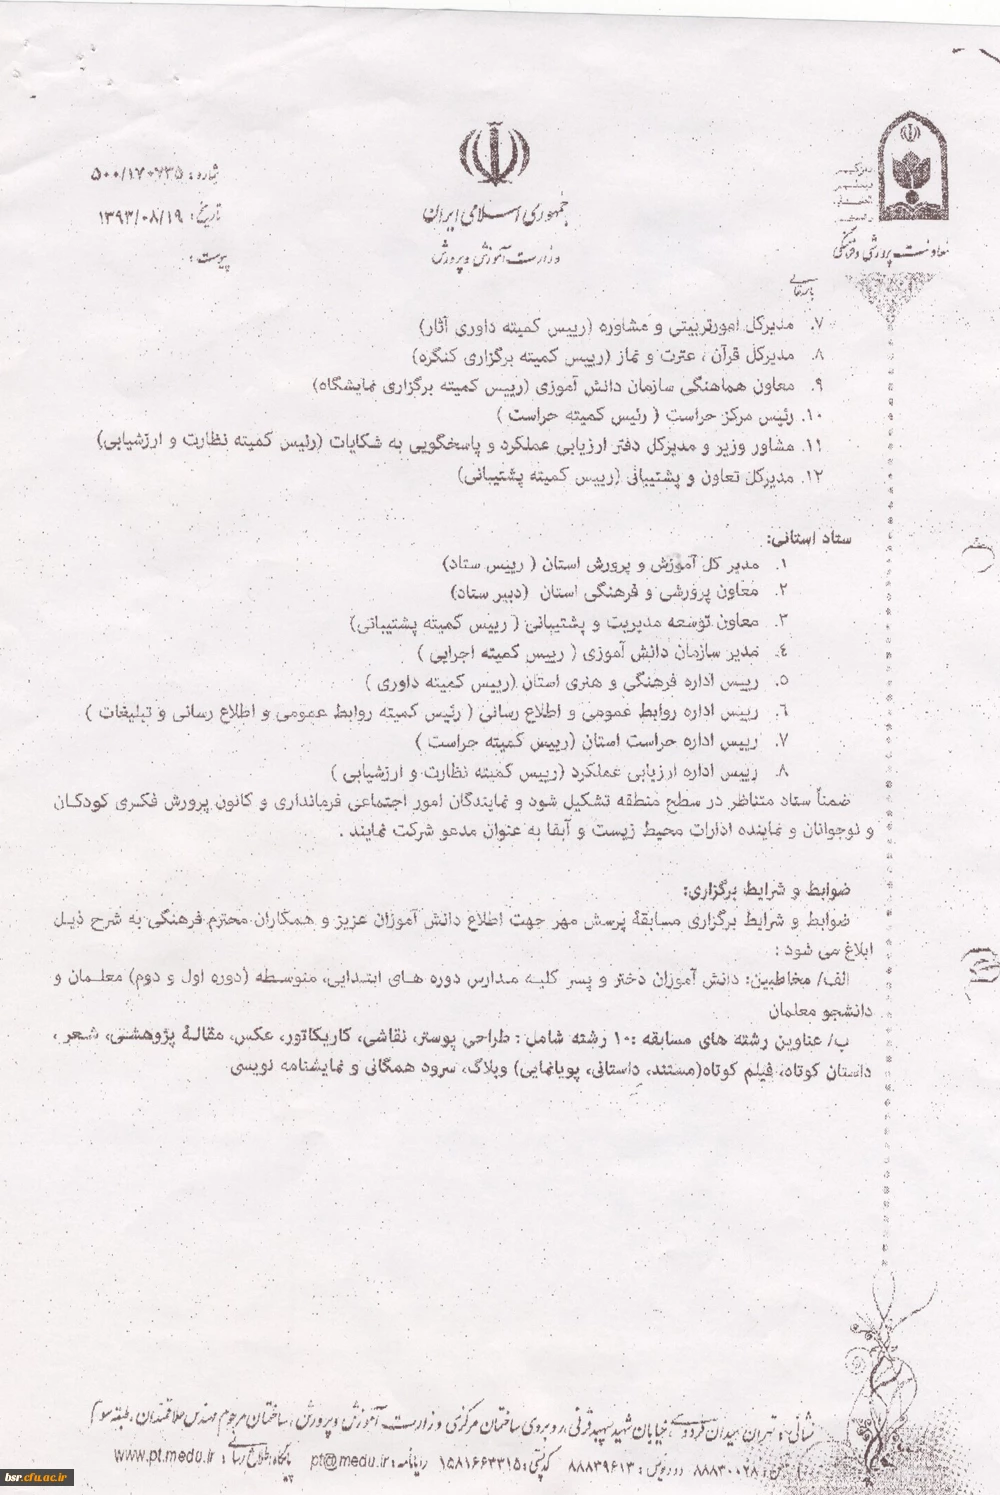 شماره: ۵۰۰/۱۷۰۷۳۵
تاریخ: ۱۳۹۳/۰۸/۱۹
پیوست:
جمهوری اسلامی ایران
وزارت آموزش و پرورش
معاونت پرورشی و فرهنگی
باسمه‌تعالی
۷. مدیرکل امورتربیتی و مشاوره (رییس کمیته داوری آثار)
۸. مدیرکل قرآن ، عترت و نماز (رییس کمیته برگزاری کنگره)
۹. معاون هماهنگی سازمان دانش آموزی (رییس کمیته برگزاری نمایشگاه)
۱۰. رئیس مرکز حراست ( رئیس کمیته حراست )
۱۱. مشاور وزیر و مدیرکل دفتر ارزیابی عملکرد و پاسخگویی به شکایات (رئیس کمیته نظارت و ارزشیابی)
۱۲. مدیرکل تعاون و پشتیبانی (رییس کمیته پشتیبانی)
ستاد استانی:
۱. مدیر کل آموزش و پرورش استان ( رییس ستاد)
۲. معاون پرورشی و فرهنگی استان (دبیر ستاد)
۳. معاون توسعه مدیریت و پشتیبانی ( رییس کمیته پشتیبانی)
۴. مدیر سازمان دانش آموزی ( رییس کمیته اجرایی )
۵. رییس اداره فرهنگی و هنری استان (رییس کمیته داوری )
۶. رییس اداره روابط عمومی و اطلاع رسانی ( رئیس کمیته روابط عمومی و اطلاع رسانی و تبلیغات )
۷. رییس اداره حراست استان (رییس کمیته حراست )
۸. رییس اداره ارزیابی عملکرد (رییس کمیته نظارت و ارزشیابی )
ضمناً ستاد متناظر در سطح منطقه تشکیل شود و نمایندگان امور اجتماعی فرمانداری و کانون پرورش فکری کودکان
و نوجوانان و نماینده ادارات محیط زیست و آبفا به عنوان مدعو شرکت نمایند .
ضوابط و شرایط برگزاری:
ضوابط و شرایط برگزاری مسابقهٔ پرسش مهر جهت اطلاع دانش آموزان عزیز و همکاران محترم فرهنگی به شرح ذیل
ابلاغ می شود :
الف/ مخاطبین: دانش آموزان دختر و پسر کلیه مدارس دوره های ابتدایی، متوسطه (دوره اول و دوم) معلمان و
دانشجو معلمان
ب/ عناوین رشته های مسابقه :۱۰ رشته شامل : طراحی پوستر، نقاشی، کاریکاتور، عکس، مقالهٔ پژوهشی، شعر ،
داستان کوتاه، فیلم کوتاه(مستند، داستانی، پویانمایی) وبلاگ، سرود همگانی و نمایشنامه نویسی
نشانی: تهران میدان فردوسی خیابان شهید سپهبد قرنی، روبروی ساختمان مرکزی وزارت آموزش و پرورش، ساختمان مرحوم مهندس علاقمندان، طبقه سوم
تلفن: ۸۸۸۳۰۰۲۸ دورنویس: ۸۸۸۳۹۶۱۳ کدپستی: ۱۵۸۱۶۶۳۳۱۵ رایانامه: pt@medu.ir پایگاه اطلاع رسانی: www.pt.medu.ir
bsr.cfu.ac.ir